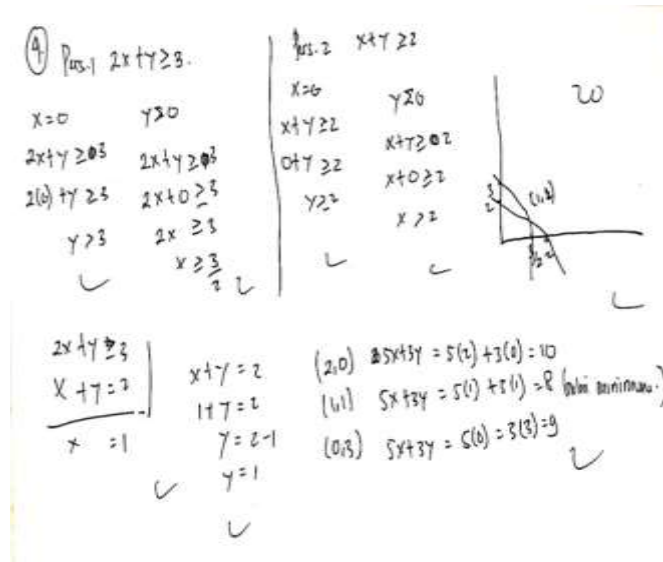 4. Pers.1 2x+y≥3.
x=0 y=0
2x+y≥3 2x+y≥3
2(0)+y≥3 2x+0≥3
y≥3 2x≥3
x≥3/2
Pers.2 x+y≥2
x=0 y=0
x+y≥2 x+y≥02
0+y≥2 x+0≥2
y≥2 x≥2
20
3
2
(1,1)
3/2 2
2x+y=3
x+y=2
x =1
x+y=2
1+y=2
y=2-1
y=1
(2,0) 5x+3y=5(2)+3(0)=10
(1,1) 5x+3y=5(1)+3(1)=8 (nilai minimum.)
(0,3) 5x+3y=5(0)=3(3)=9